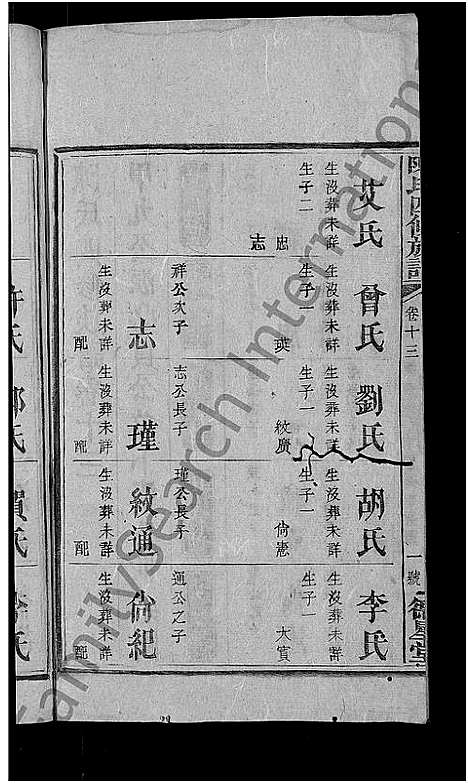 氏四修族譜
卷十三
一號
艾氏
生沒葬未詳
生子二
忠
志
曾氏
生沒葬未詳
生子一
英
劉氏
生沒葬未詳
生子一
紋廣
胡氏
生沒葬未詳
生子一
尙憲
李氏
生沒葬未詳
生子一
大賓
祥公次子
志
生沒葬未詳
配
志公長子
瑾
生沒葬未詳
配
瑾公長子
紋通
生沒葬未詳
配
通公之子
尙紀
生沒葬未詳
配
許氏
郭氏
賀氏
李氏
FamilySearch International